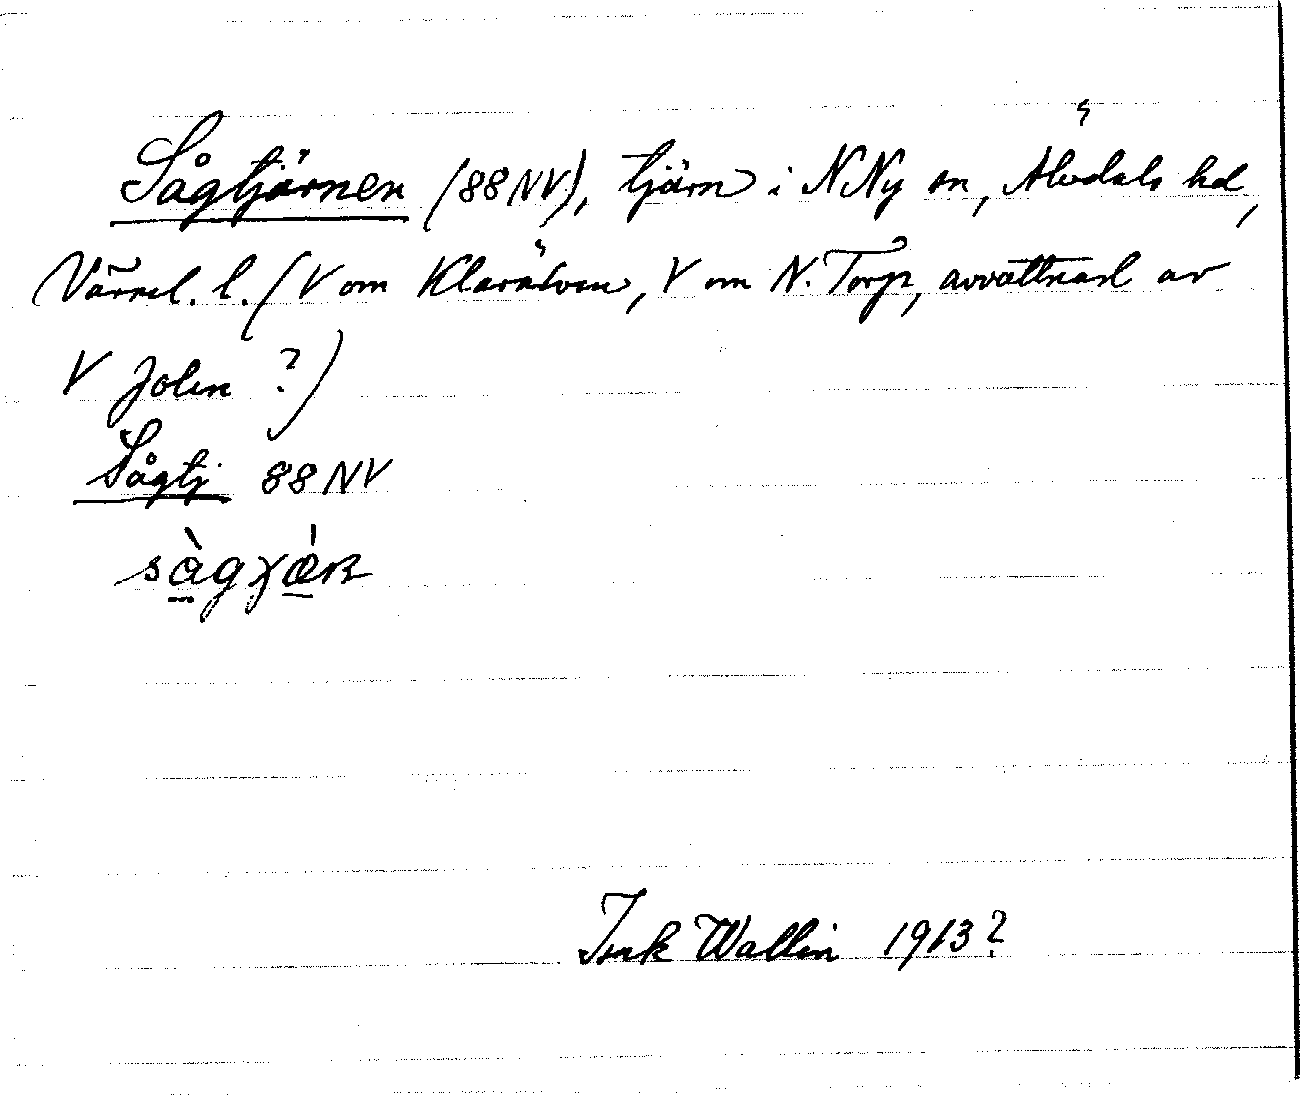 Sågtjärnen (88NV), tjärn i NNy sn, Älvdals hd,
Värml. l. (V om Klarälven, V om N. Torp, avvattnad av
V Jolen ?)
Sågtj 88NV
sàgχæ̀ɴ
Isak Wallin 1913?